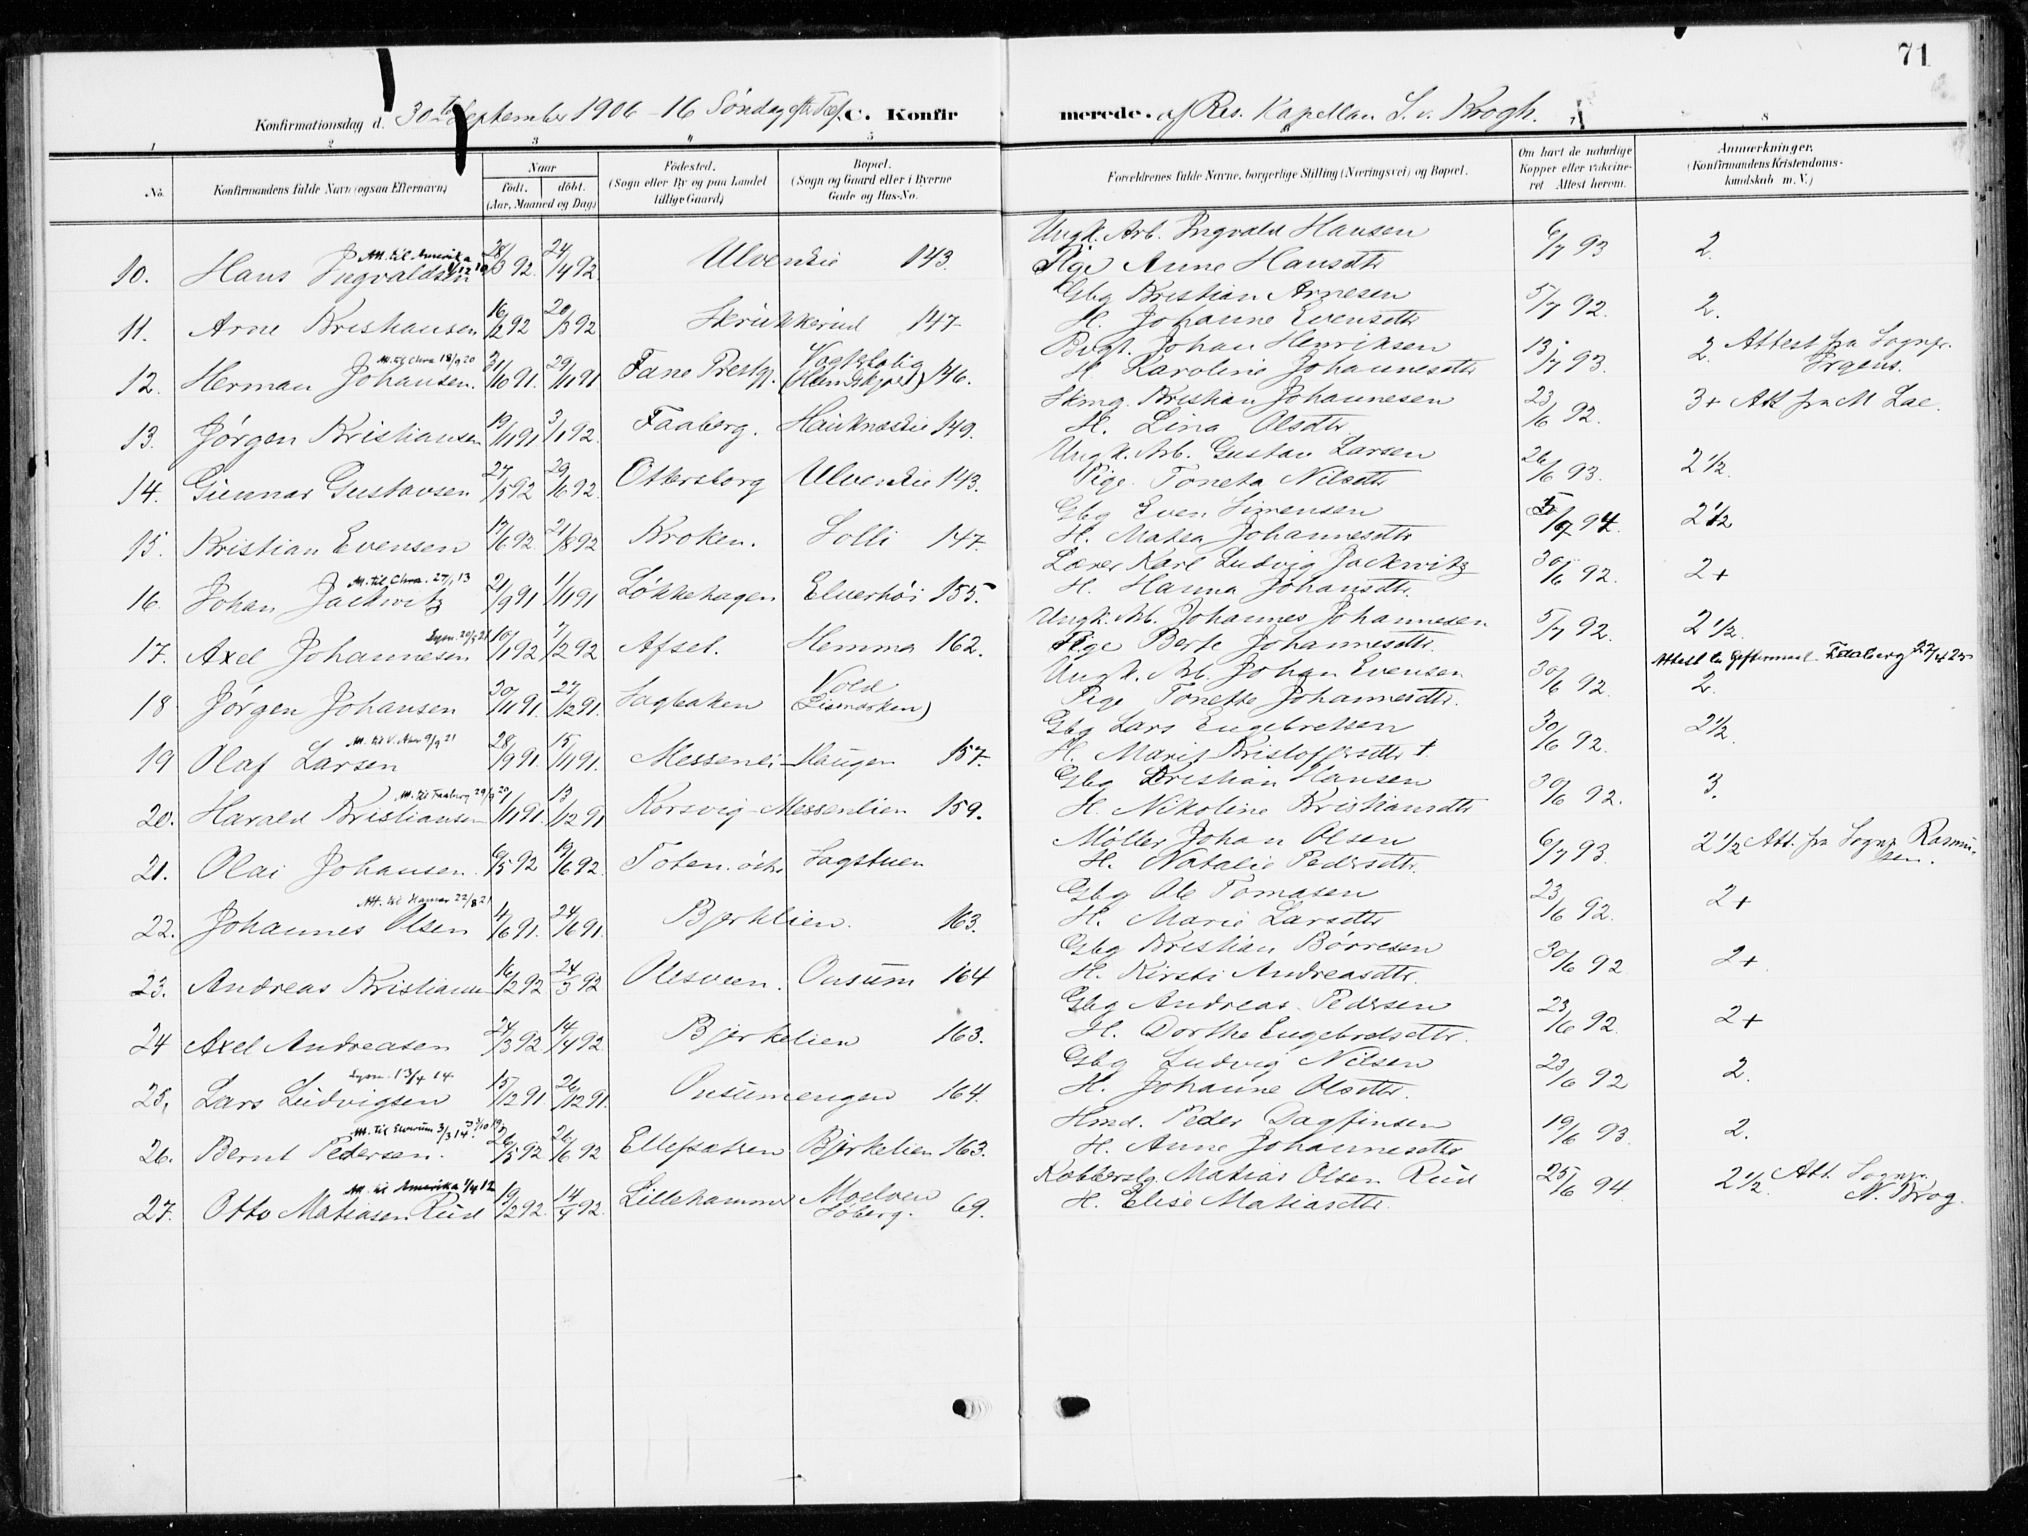 71
Konfirmationsdag d. 30te September 1906 – 16 Søndag eft. Tref. C. Konfir merede. af Res. Kapellan S. v. Krogh.
1 2 3 4 5 7 8
No. Konfirmandens fulde Navn (ogsaa Efternavn) Naar Fødested. Bopæl. Forældrenes fulde Navne, borgerlige Stilling (Næringsvei) og Bopæl. Om havt de naturlige Anmærkninger.
født. døbt. (Sogn eller By og paa Landet (Sogn og Gaard eller i Byerne Kopper eller vakcine- (Konfirmandens Kristendoms-
(Aar, Maaned og Dag) tillige Gaard) Gade og Hus-No. ret Attest herom. kundskab m. V.)
Att. til Amerika Ungk. Arb. Ingvald Hansen
10. Hans Ingvaldsen 28/3 92. 24/4 92 Ulvenlie 143. Pige Anne Hansdtr 6/7 93 2.
Gbg Kristian Arnesen
11. Arne Kristiansen 16/2 92 20/3 92 Skrukkerud 147 H. Johanne Evensdtr 5/7 92. 2.
M. til Chra 18/9 20 Bvgt. Johan Henriksen Attest fra Sognepr.
12. Herman Johansen. 31/10 91. 29/11 91 Fane Prestg. Vogtbolig 146. H Karoline Johannesdtr 13/7 93. 2.
Skmg. Kristian Johannesen
13. Jørgen Kristiansen 19/11 91 3/1 92. Faaberg. 149. H. Lina Olsdtr 23/6 92. 3+ Att fra M Lae.
Ungk. Arb. Gustav Larsen
14. Gunnar Gustavsen 27/5 92 29/6 92. Ottersborg Ulvenlie 143. Pige. Toneta Nilsdtr 26/6 93. 2 1/2
Gbg Even Simensen
15. Kristian Evensen 17/6 92. 21/8 92 Kroken. Solli 147. H. Matea Johannesdtr 5/7 94. 2 1/2
M. til Chra. 27/1 13 Lærer Karl Ludvig Jackwitz
16. Johan Jackwitz 21/9 91 1/11 91 Løkkehagen Elverhøi 155. H. Hanna Johansdtr. 30/6 92. 2+
Lysn. 20/3 21 Ungk. Arb. Johannes Johannesen
17. Axel Johannesen 10/1 92 7/2 92 Afset. Hemma 162. Pige Berte Johannesdtr. 5/7 92. 2 1/2.
Ungk. Arb. Johan Evensen Faaberg 22/4 25
18 Jørgen Johansen 30/11 91. 27/12 91. Sagbaken Vold (Liemarken) Pige Tonette Johannesdtr. 30/6 92. 2.
Gbg Lars Engebretsen
19 Olaf Larsen 28/9 91. 15/11 91. Messenli – Haugen 157. H. Marit Kristoffersdtr † 30/6 92. 2 1/2
M. til Faaberg Gbg Kristian Hansen
20. Harald Kristiansen 13/12 91 Korsvig – Messenlien 159. H. Nikoline Kristiansdtr 30/6 92. 3.
Møller Johan Olsen
21. Olai Johansen. 6/5 92 19/6 92. Toten. Sagstuen H. Natalie Pedersdtr. 6/7 93. 2 1/2 Att. fra Sognepr Rasmussen.
Att. til Hamar 22/8 21 Gbg Ole Tomasen
22. Johannes Olsen 4/6 91. 24/6 91. Bjerkelien. 163. H. Marie Larsdtr 23/6 92. 2+
Gbg Kristian Børresen
23. Andreas Kristiansen 16/2 92 24/3 92 Olesveen. Onsum 164 H. Kirsti Andreasdtr. 30/6 92 2+
Gbg Andreas Pedersen
24 Axel Andreasen 27/3 92 14/4 92. Bjerkelien 163. H. Dorthe Engebretsdtr. 23/6 92. 2+
Lysn. 13/4 14 Gbg Ludvig Nilsen
25. Lars Ludvigsen 15/12 91 26/12 91. Onsumengen 164. H. Johanne Olsdtr. 23/6 92 2.
Att. til Elverum 3/3 14. Hmd. Peder Dagfinsen
26. Bernt Pedersen. 26/5 92 26/6 92 Ellefsætren Bjerkelien 163. H. Anne Johannesdtr 19/6 93. 2.
Att. til Amerika 1/4 12 Kobberslg Matias Olsen Rud Att. Sognepr.
27. Otto Matiasen Rud 19/2 92. 14/4 92. Lillehammer Moelven Søberg. 69. H. Elise Matiasdtr. 25/6 94. 2 1/2. N. Krog.